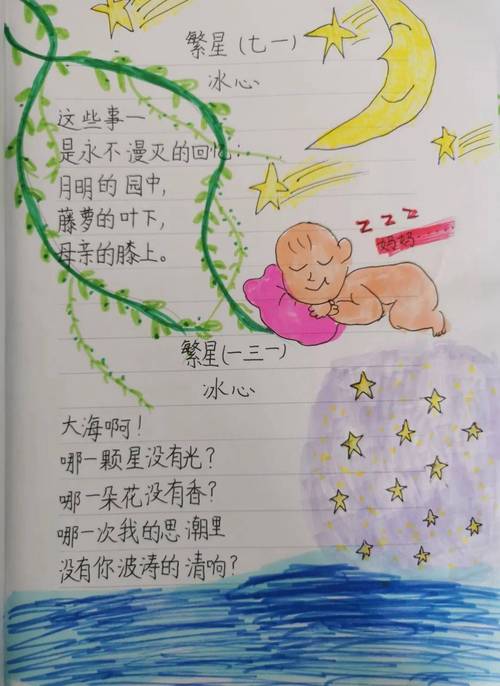 繁星(七一)
冰心
这些事一
是永不漫灭的回忆:
月明的园中,
藤萝的叶下,
母亲的膝上。
z z z
妈妈
繁星(一三一)
冰心
大海啊!
哪一颗星没有光?
哪一朵花没有香?
哪一次我的思潮里
没有你波涛的清响?